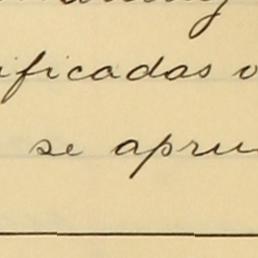 ificadas v
se apru